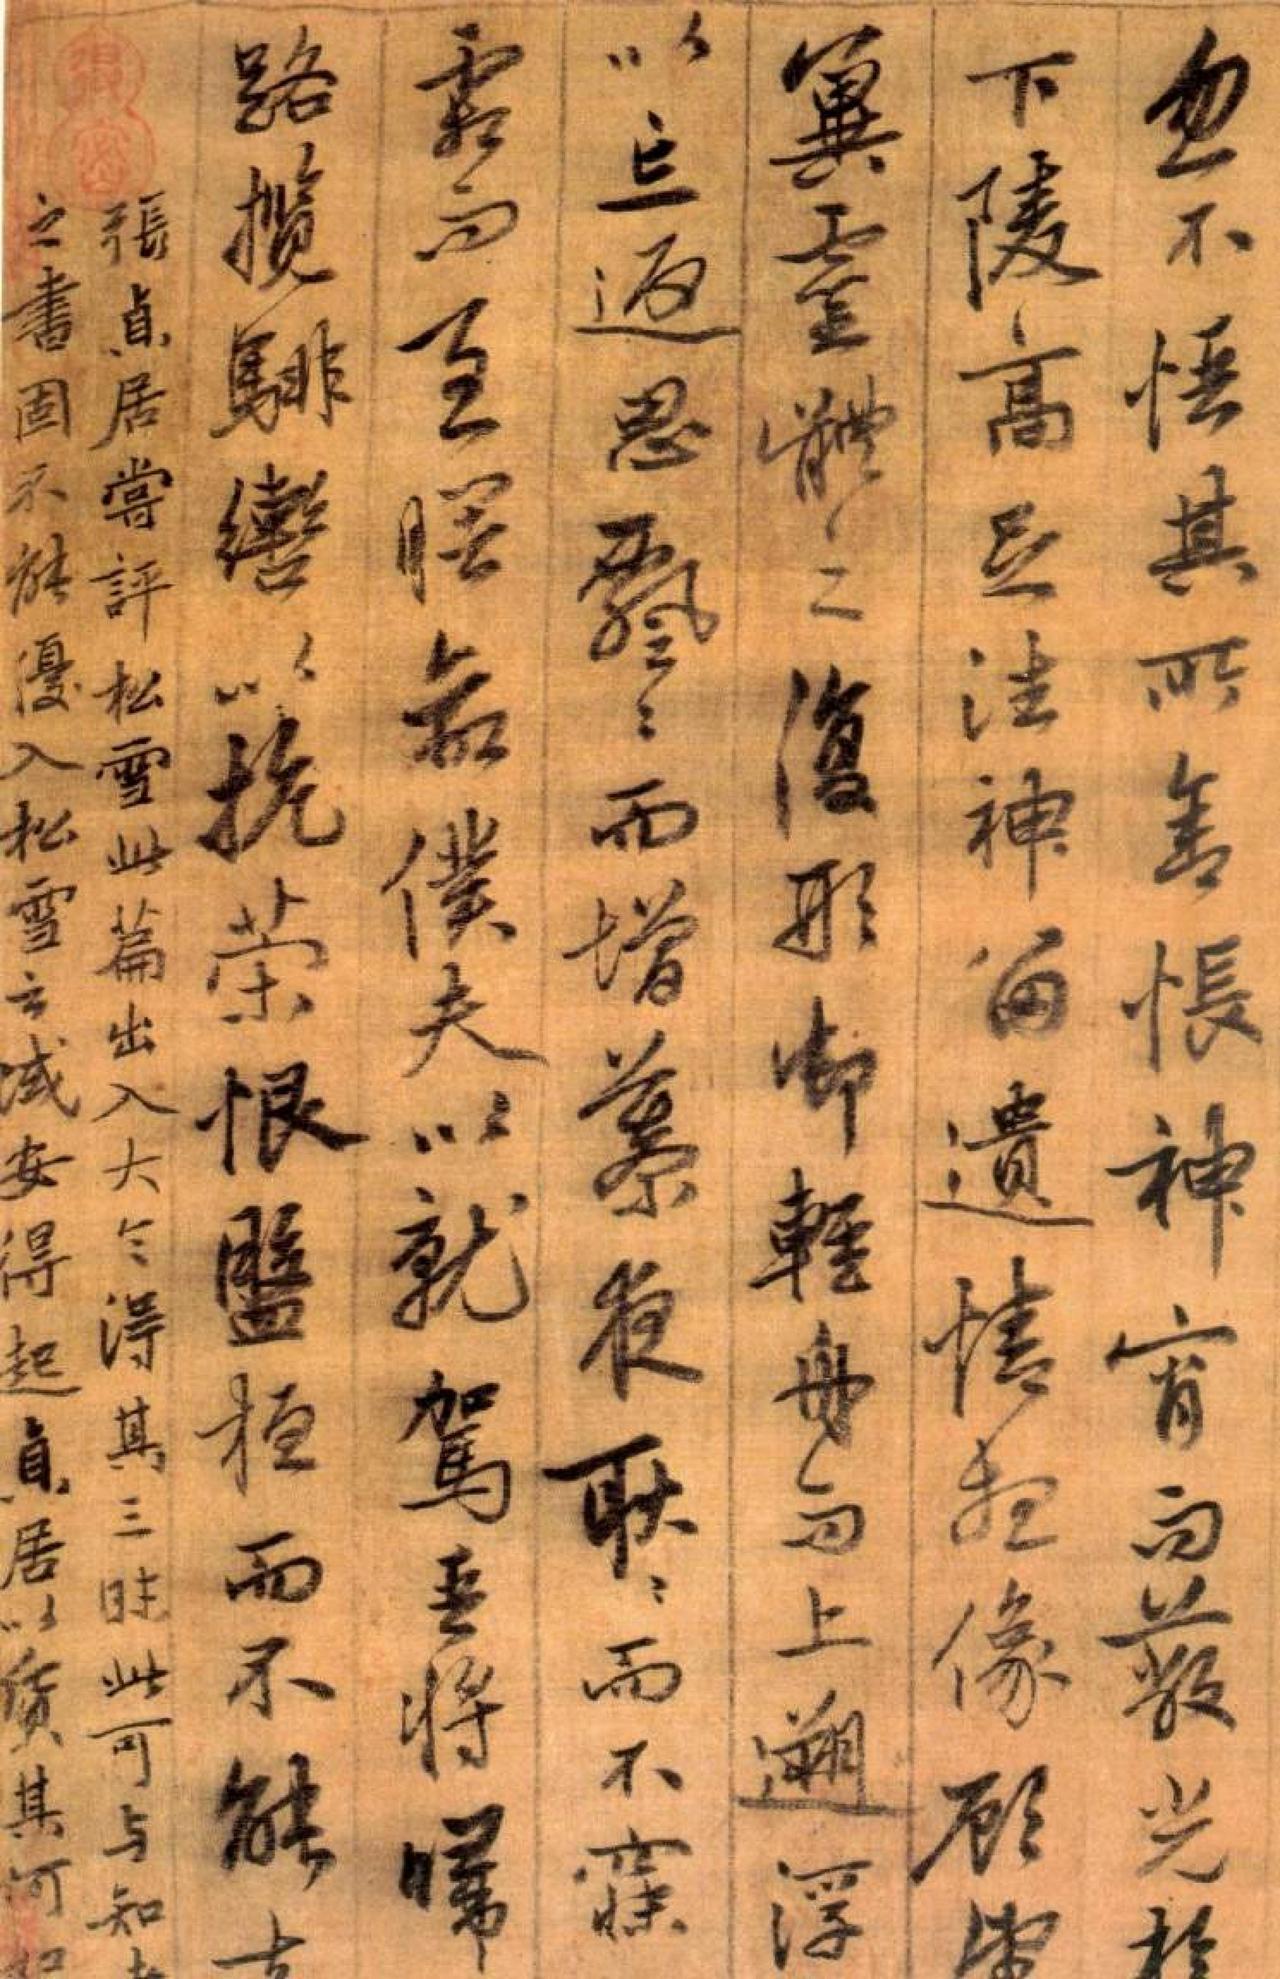 忽不悟其所舍悵神宵而蔽光於
下陵高足往神留遺情想像顧望
冀靈體之復形御輕舟而上遡浮
以忘返思飄ミ而增慕夜耿ミ而不寐
霜而至曙命僕夫以就駕吾將歸
路攬騑轡以抗策悵盤桓而不能去
張貞居嘗評松雪此篇出入大令得其三昧此可与知
之書固不能優入松雪之域安得起貞居以質其可